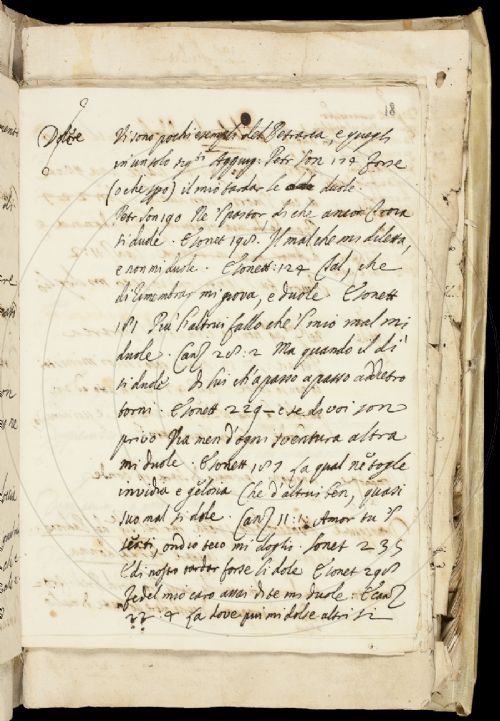 18
Dolse Vi sono pochi esempli del Petrarca, e quegli
in un solo sig.to Aggiug: Petr Son 124 forse
(o che spo) il mio tardar le duole.
Petr Son 190 Ne 'l pastor, di che ancor Troia
si duole. E Sonet 198. Il mal che mi diletta,
e non mi duole. E Sonett: 124 Tal, che
di rimembrar mi giova, e duole E Sonett
181 Più l'altrui fallo che 'l mio mal mi
duole. Canz 28: 2 Ma quando il dì
si duole Di lui ch'a passo a passo addietro
torni. E Sonett 229 e se di voi son
privo Via men d'ogni sventura altra
mi duole. E Sonett 187 La qual ne toglie
invidia e gelosia Che d'altrui ben, quasi
suo mal si dole. Canz 11: 1: Amor tu 'l
senti, ond'io teco mi doglio. Sonet 235
E di nostro tardar forse li dole E Sonet 298
fedel mio caro assai di te mi duole. E Canz
22: 4 La dove più mi dolse altri si